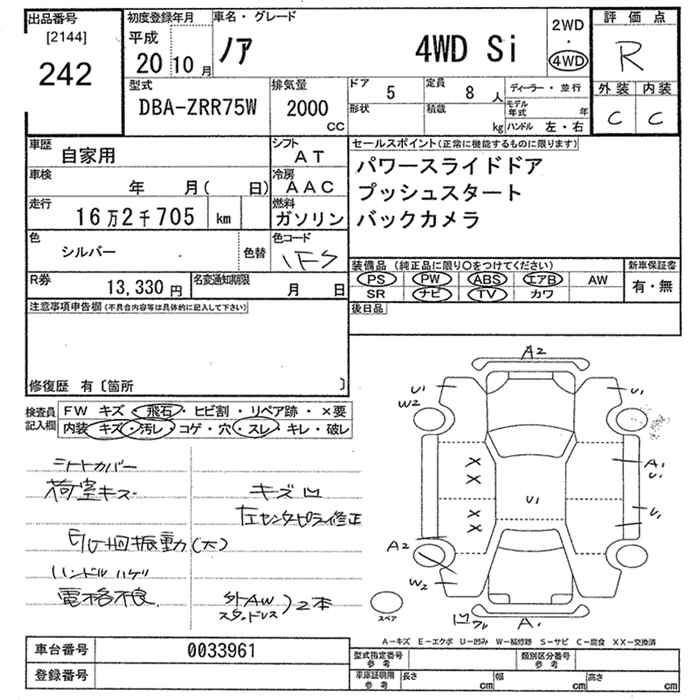 出品番号
[2144]
242
初度登録年月
平成
20 10 月
車名・グレード
ノア 4WD Si
2WD
・
4WD
評価点
R
外装 内装
C C
型式
DBA-ZRR75W
排気量
2000
CC
ドア
5
定員
8 人
形状
積載
kg
ディーラー・並行
モデル
年式 年
ハンドル 左・右
車歴
自家用
シフト
AT
車検
年 月( 日)
冷房
AAC
走行
16万2千705 km
燃料
ガソリン
色
シルバー
色替
色コード
1F5
R券
13,330 円
名変通知期限
月 日
セールスポイント(正常に機能するものに限ります)
パワースライドドア
プッシュスタート
バックカメラ
装備品 (純正品に限り○をつけてください)
PS PW ABS エアB AW
SR ナビ TV カワ
新車保証書
有・無
後日品
注意事項申告欄(不具合内容等は具体的に記入して下さい)
修復歴 有〔箇所 〕
検査員
記入欄
FW キズ・飛石・ヒビ割・リペア跡・×要
内装 キズ・汚レ・コゲ・穴・スレ・キレ・破レ
シートカバー
荷室キズ
キズ凹
左センタピラー修正
E/G回振動(大)
ハンドルハゲ
電格不良
外AW
スタッドレス
)2本
A2
U1
W2
U1
A1
U1
U1
U1
A2
W2
スペア
凹ワレ
A1
A-キズ E-エクボ U-凹み W-補修跡 S-サビ C-腐食 XX-交換済
車台番号
0033961
登録番号
型式指定番号
参考
類別区分番号
参考
車庫証明用
参考
長さ cm
幅 cm
高さ cm